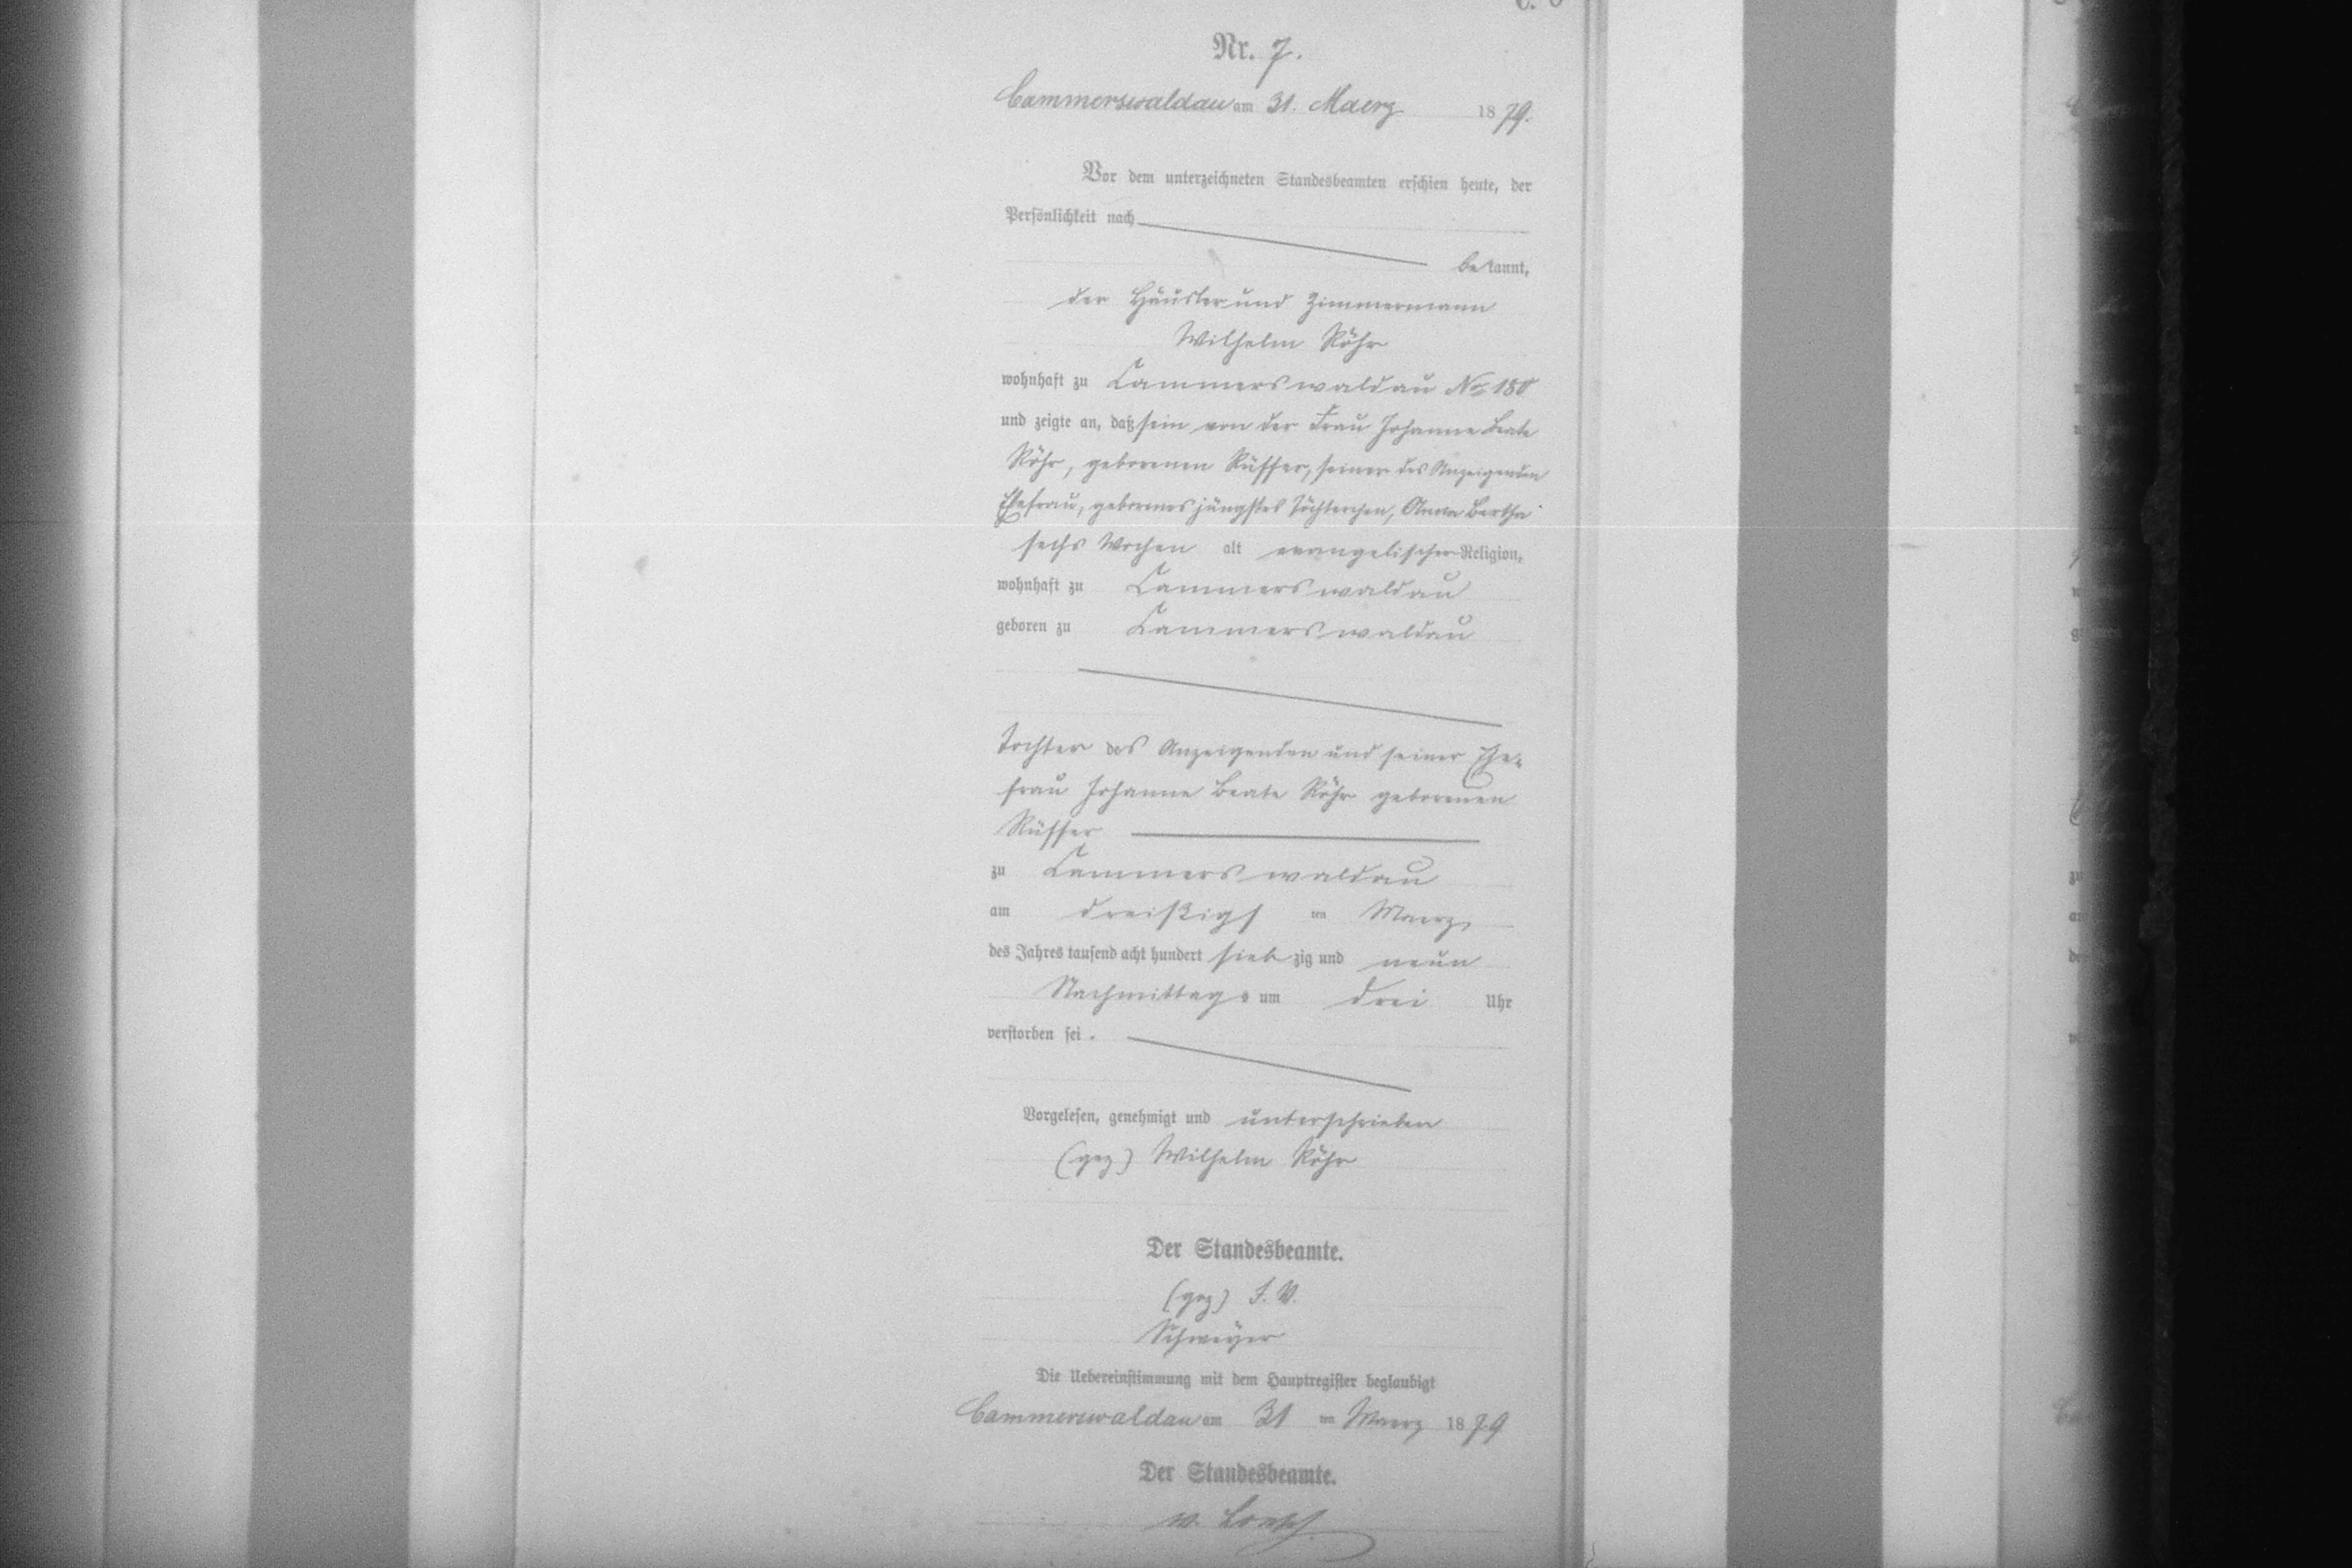 Nr. 7.
Cammerswaldau am 31. Maerz 1879.
Vor dem unterzeichneten Standesbeamten erschien heute, der
Persönlichkeit nach
bekannt,
der Häusler und Zimmermann
Wilhelm Röhr
wohnhaft zu Cammerswaldau No 180
und zeigte an, daß sein von der Frau Johanne Beate
Röhr, geborenen Rüffer, seiner des Anzeigenden
Ehefrau, geborenes jüngstes Töchterchen, Anna Bertha
sechs Wochen alt evangelischer Religion,
wohnhaft zu Cammerswaldau
geboren zu Cammerswaldau
Tochter des Anzeigenden und seiner Ehe-
frau Johanne Beate Röhr geborenen
Rüffer
zu Cammerswaldau
am dreißigsten Maerz
des Jahres tausend acht hundert siebzig und neun
Nachmittags um drei Uhr
verstorben sei.
Vorgelesen, genehmigt und unterschrieben
(gez) Wilhelm Röhr
Der Standesbeamte.
(gez) I. V.
Schweyer
Die Uebereinstimmung mit dem Hauptregister beglaubigt
Cammerswaldau am 31 ten Maerz 1879
Der Standesbeamte.